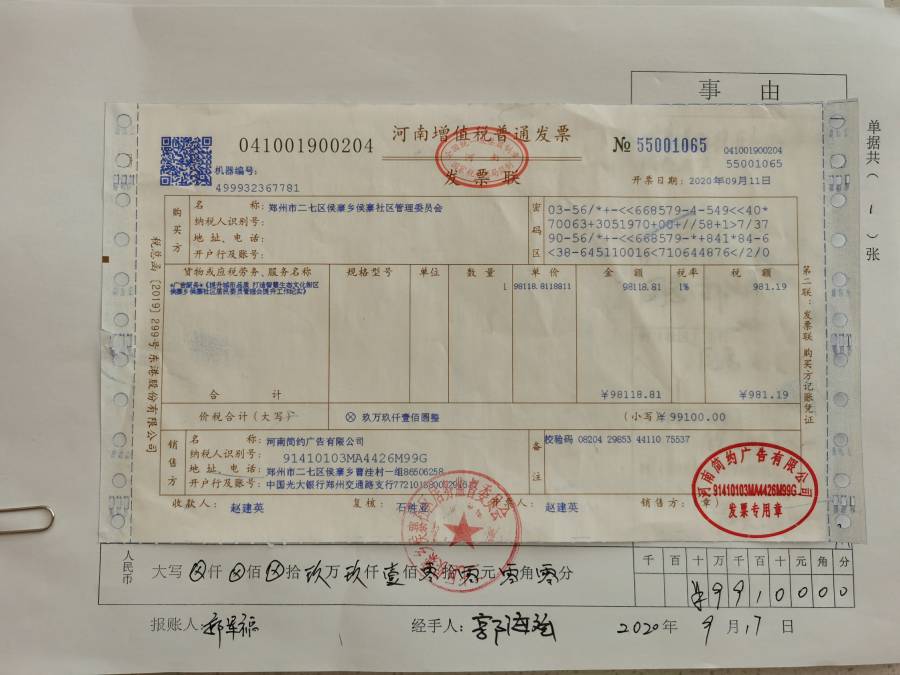 事 由
单据共（ 1 ）张
041001900204
河南增值税普通发票
发票联
№ 55001065
041001900204
55001065
机器编号：
499932367781
开票日期：2020年09月11日
购买方
名 称：郑州市二七区侯寨乡侯寨社区管理委员会
纳税人识别号：
地 址、电 话：
开户行及账号：
密码区
03-56/*+-<<668579-4-549<<40*
70063+3051970+00+//58+1>7/37
90-56/*+-<<668579-*+841*84-6
<38-645110016<710644876</2/0
货物或应税劳务、服务名称 规格型号 单位 数 量 单 价 金 额 税率 税 额
*广告服务*《提升城市品质 打造智慧生态文化街区 1 98118.8118811 98118.81 1% 981.19
侯寨乡侯寨社区居民委员管理会提升工作纪实》
合 计 ¥98118.81 ¥981.19
价税合计（大写） ⊗ 玖万玖仟壹佰圆整 （小写）¥ 99100.00
销售方
名 称：河南简约广告有限公司
纳税人识别号：91410103MA4426M99G
地 址、电 话：郑州市二七区侯寨乡曹洼村一组86506258
开户行及账号：中国光大银行郑州交通路支行
备注
校验码 08204 29853 44110 75537
收款人：赵建英 复核：石胜亚 开票人：赵建英 销售方：（章）
税总函［2019］299号 东港股份有限公司
第二联：发票联 购买方记账凭证
河南简约广告有限公司
91410103MA4426M99G
发票专用章
人民币 大写 ⊗仟⊗佰⊗拾玖万玖仟壹佰零拾零元零角零分
千 百 十 万 千 百 十 元 角 分
¥ 9 9 1 0 0 0 0
报账人： 经手人： 2020年 9 月 17 日